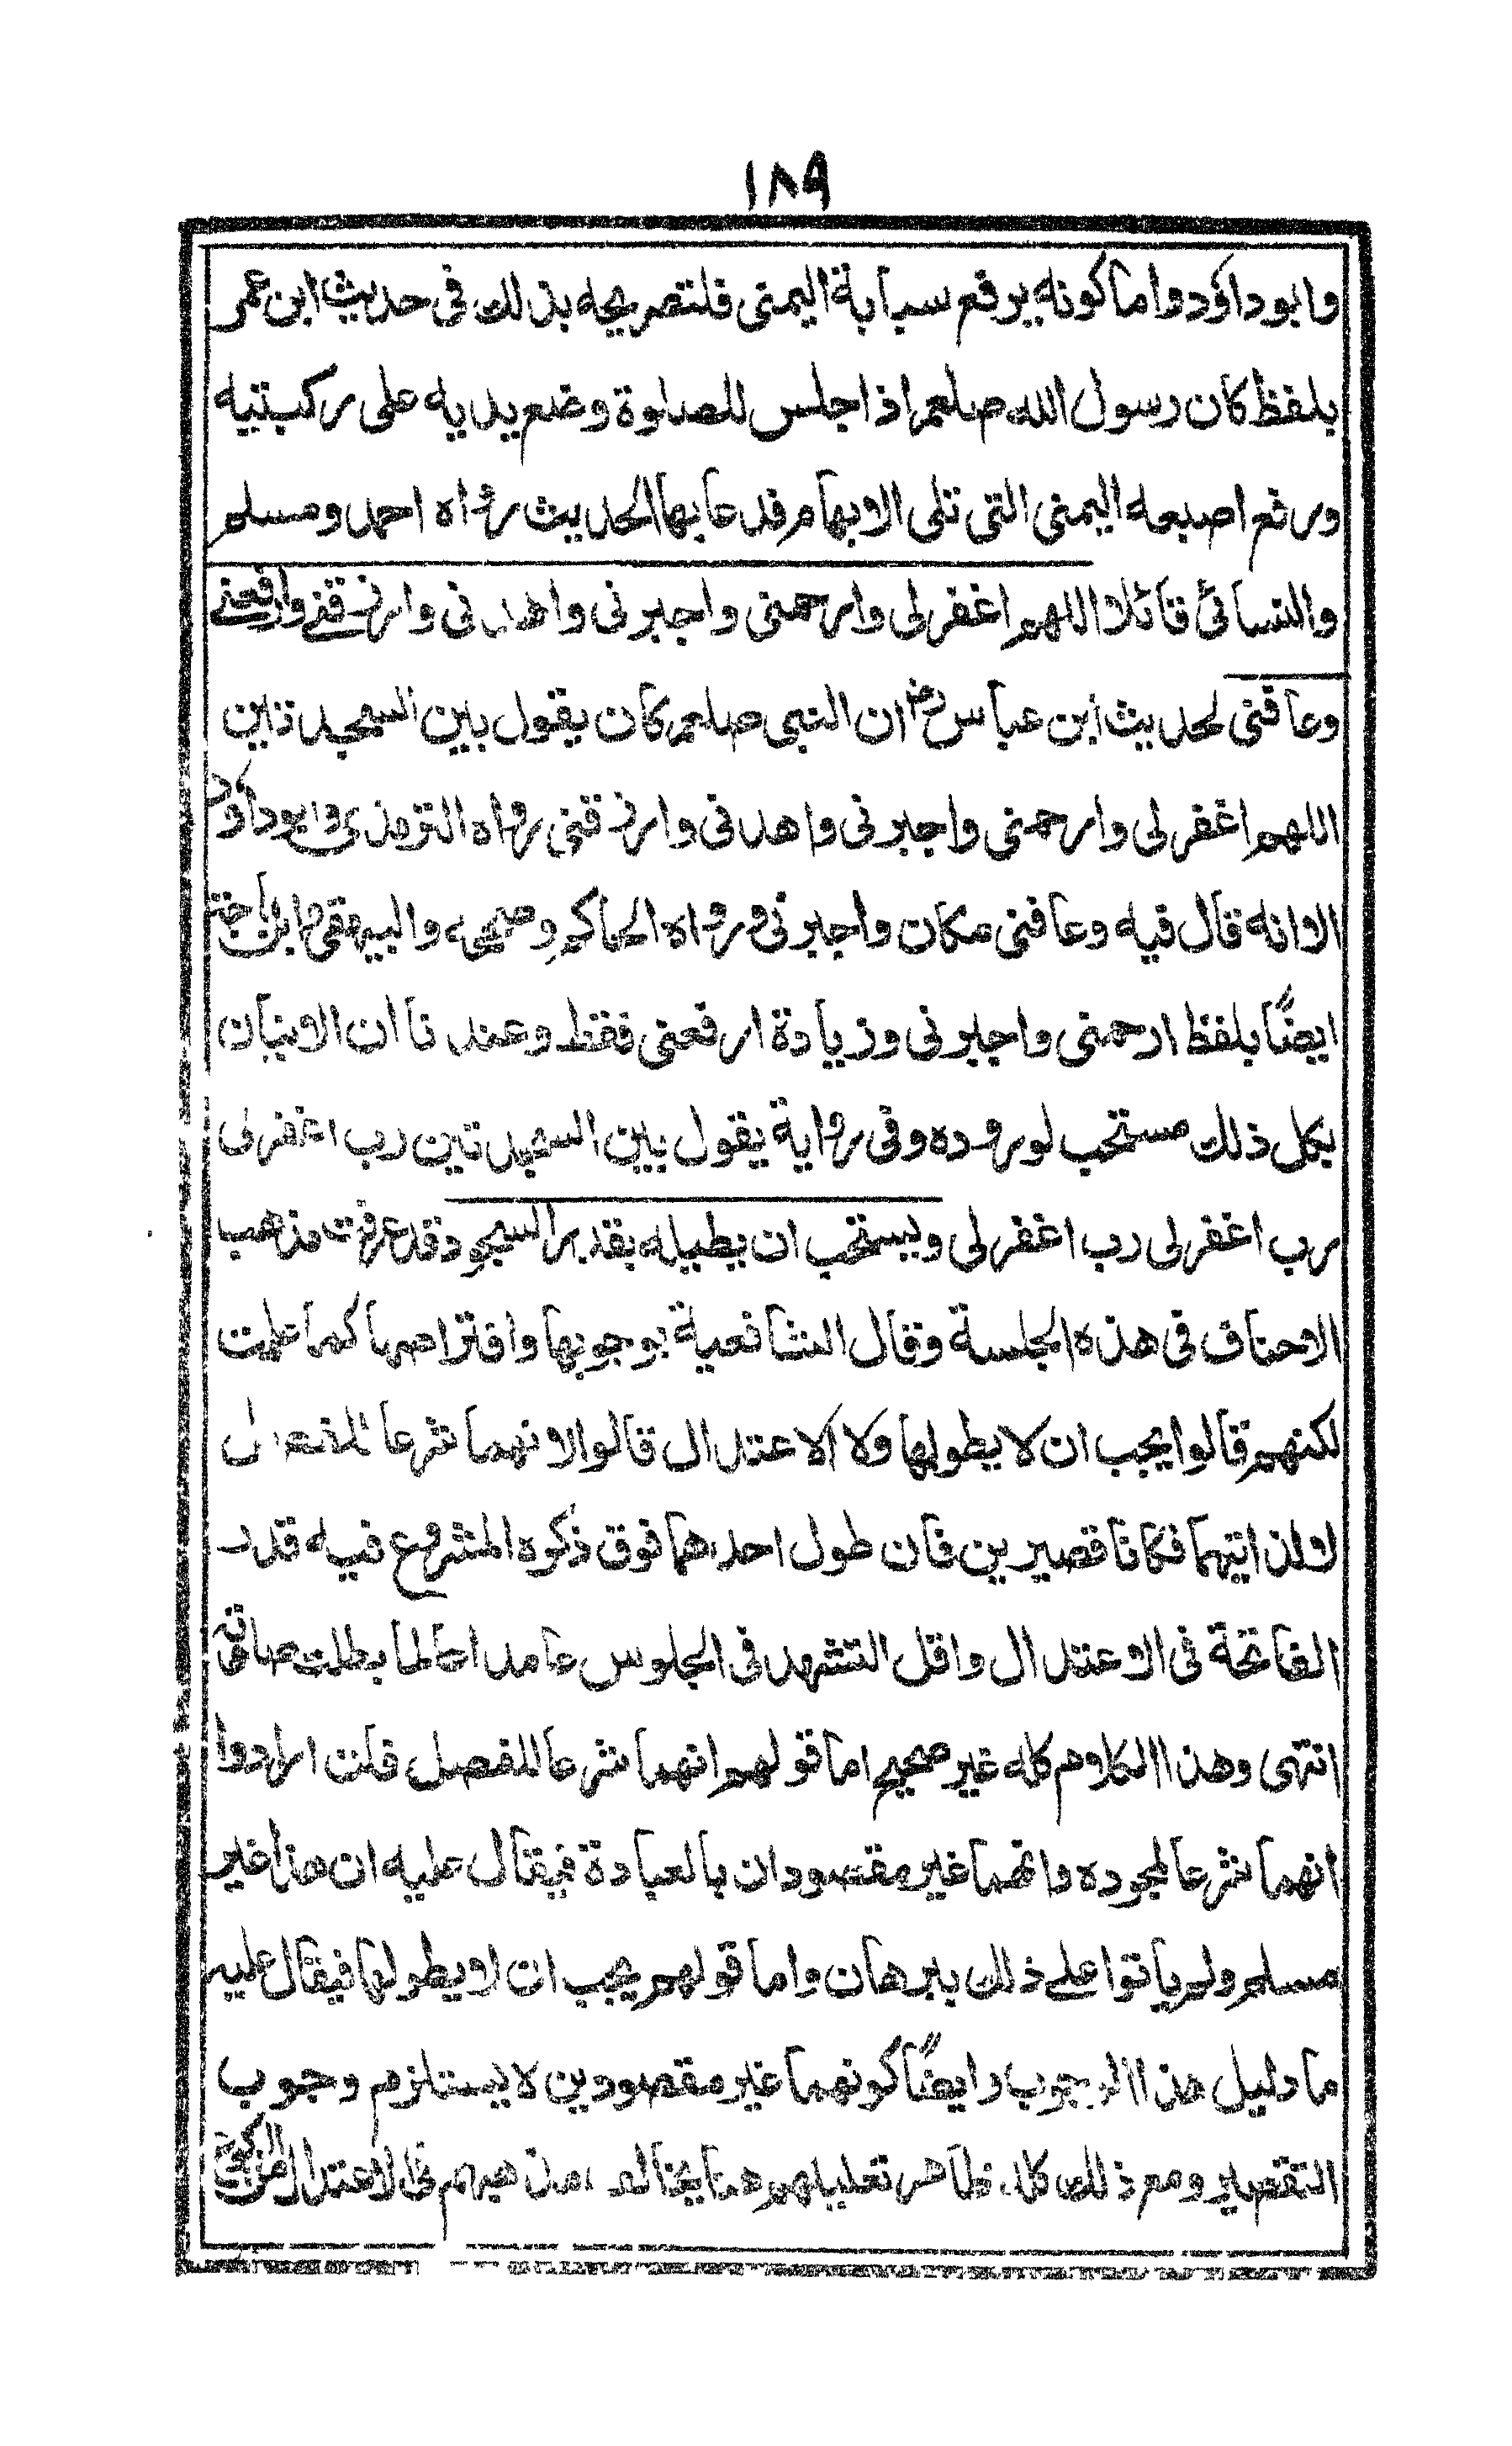 ١٨٩
وابوداؤد واما كونه يرفع سبابة اليمنى فلتصريحه بذلك فى حديث ابن عمر
بلفظ كان رسول الله صلعم اذا جلس للصلوة وضع يديه على ركبتيه
ورفع اصبعه اليمنى التى تلى الابهام فدعا بها الحديث رواه احمد ومسلم
والنسائ قائلا اللهم اغفرلى وارحمنى واجبرنى واهدنى وارزقنى وارفعنى
وعافنى لحديث ابن عباس رض ان النبى صلعم كان يقول بين السجدتين
اللهم اغفرلى وارحمنى واجبرنى واهدنى وارزقنى رواه الترمذى وابوداؤد
الا انه قال فيه وعافنى مكان واجبرنى ورواه الحاكم وصححه والبيهقى وابن ماجة
ايضًا بلفظ ارحمنى واجبرنى وزيادة ارفعنى فقط وعندنا ان الاتيان
بكل ذلك مستحب لوروده وفى رواية يقول بين السجدتين رب اغفرلى
رب اغفرلى رب اغفرلى ويستحب ان يطيله بقدر السجود قد عرفت مذهب
الاحناف فى هذه الجلسة وقال الشافعية بوجوبها وافتراضها كما علمت
لكنهم قالوا يجب ان لا يطولها ولا الاعتدال قالوا لانهما شرعا للفصل
لا لذاتيهما فكانا قصيرين فان طول احدهما فوق ذكره المشروع فيه قدر
الفاتحة فى الاعتدال واقل التشهد فى الجلوس عامدا عالما بطلت صلاته
انتهى وهذا الكلام كله غير صحيح اما قولهم انهما شرعا للفصل فلئن ارادوا
انهما شرعا لمجرده وانهما غير مقصودان بالعبادة فيقال عليه ان هذا غير
مسلم ولم ياتوا على ذلك ببرهان واما قولهم يجب ان لا يطولها فيقال عليه
ما دليل هذا الوجوب وايضًا كونهما غير مقصودين لا يستلزم وجوب
التقصير ومع ذلك كله ظاهر تعليلهم هنا يخالف مذهبهم فى الاعتدال من الركوع